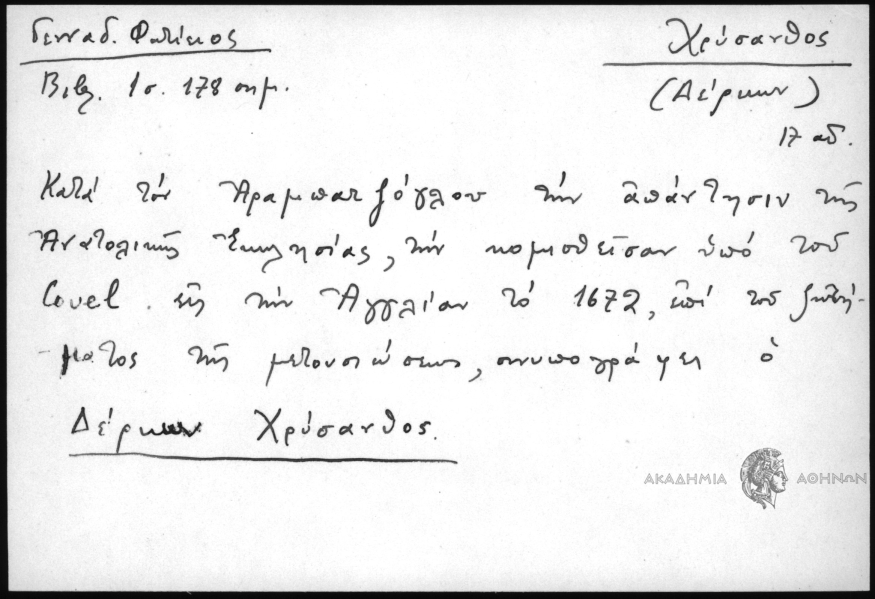 Γενναδ. Φωτίειος
Χρύσανθος
Βιβλ. Ισ. 178 σημ.
(Δέρκων)
17 αδ.
Κατά τόν Ἀραμπατζόγλου τήν ἀπάντησιν τῆς
Ἀνατολικῆς Ἐκκλησίας, τήν κομισθεῖσαν ὑπό τοῦ
Covel εἰς τήν Ἀγγλίαν τό 1672, ἐπί τοῦ ζητή-
ματος τῆς μετουσιώσεως, συνυπογράφει ὁ
Δέρκων Χρύσανθος.
ΑΚΑΔΗΜΙΑ ΑΘΗΝΩΝ